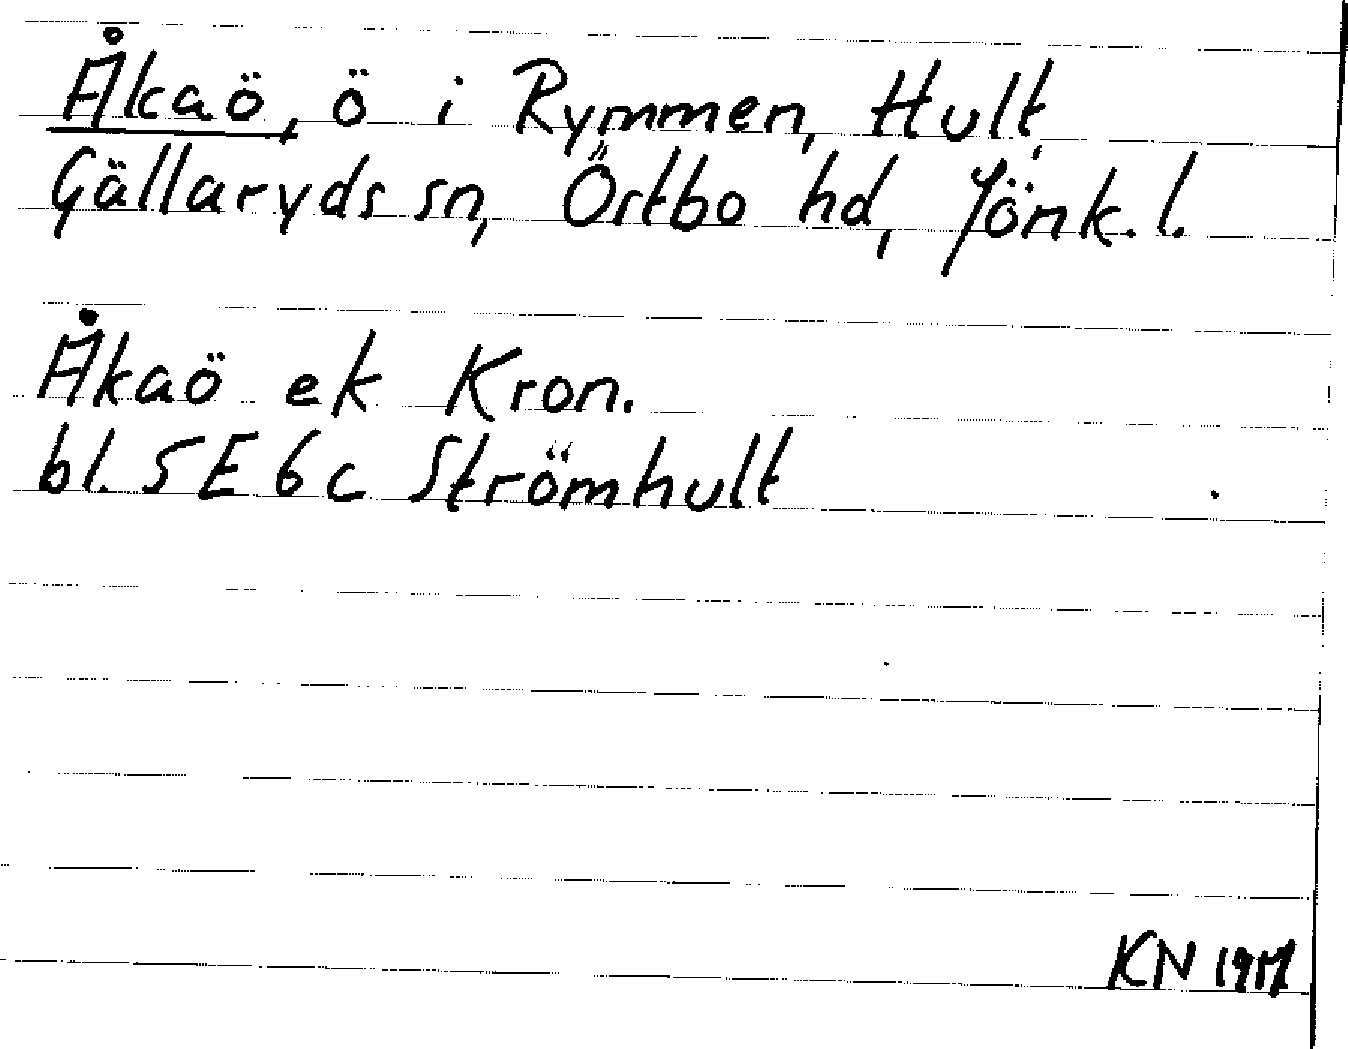 Åkaö, ö i Rymmen, Hult,
Gällaryds sn, Östbo hd, Jönk. l.
Åkaö ek Kron.
bl. 5E 6c Strömhult
KN